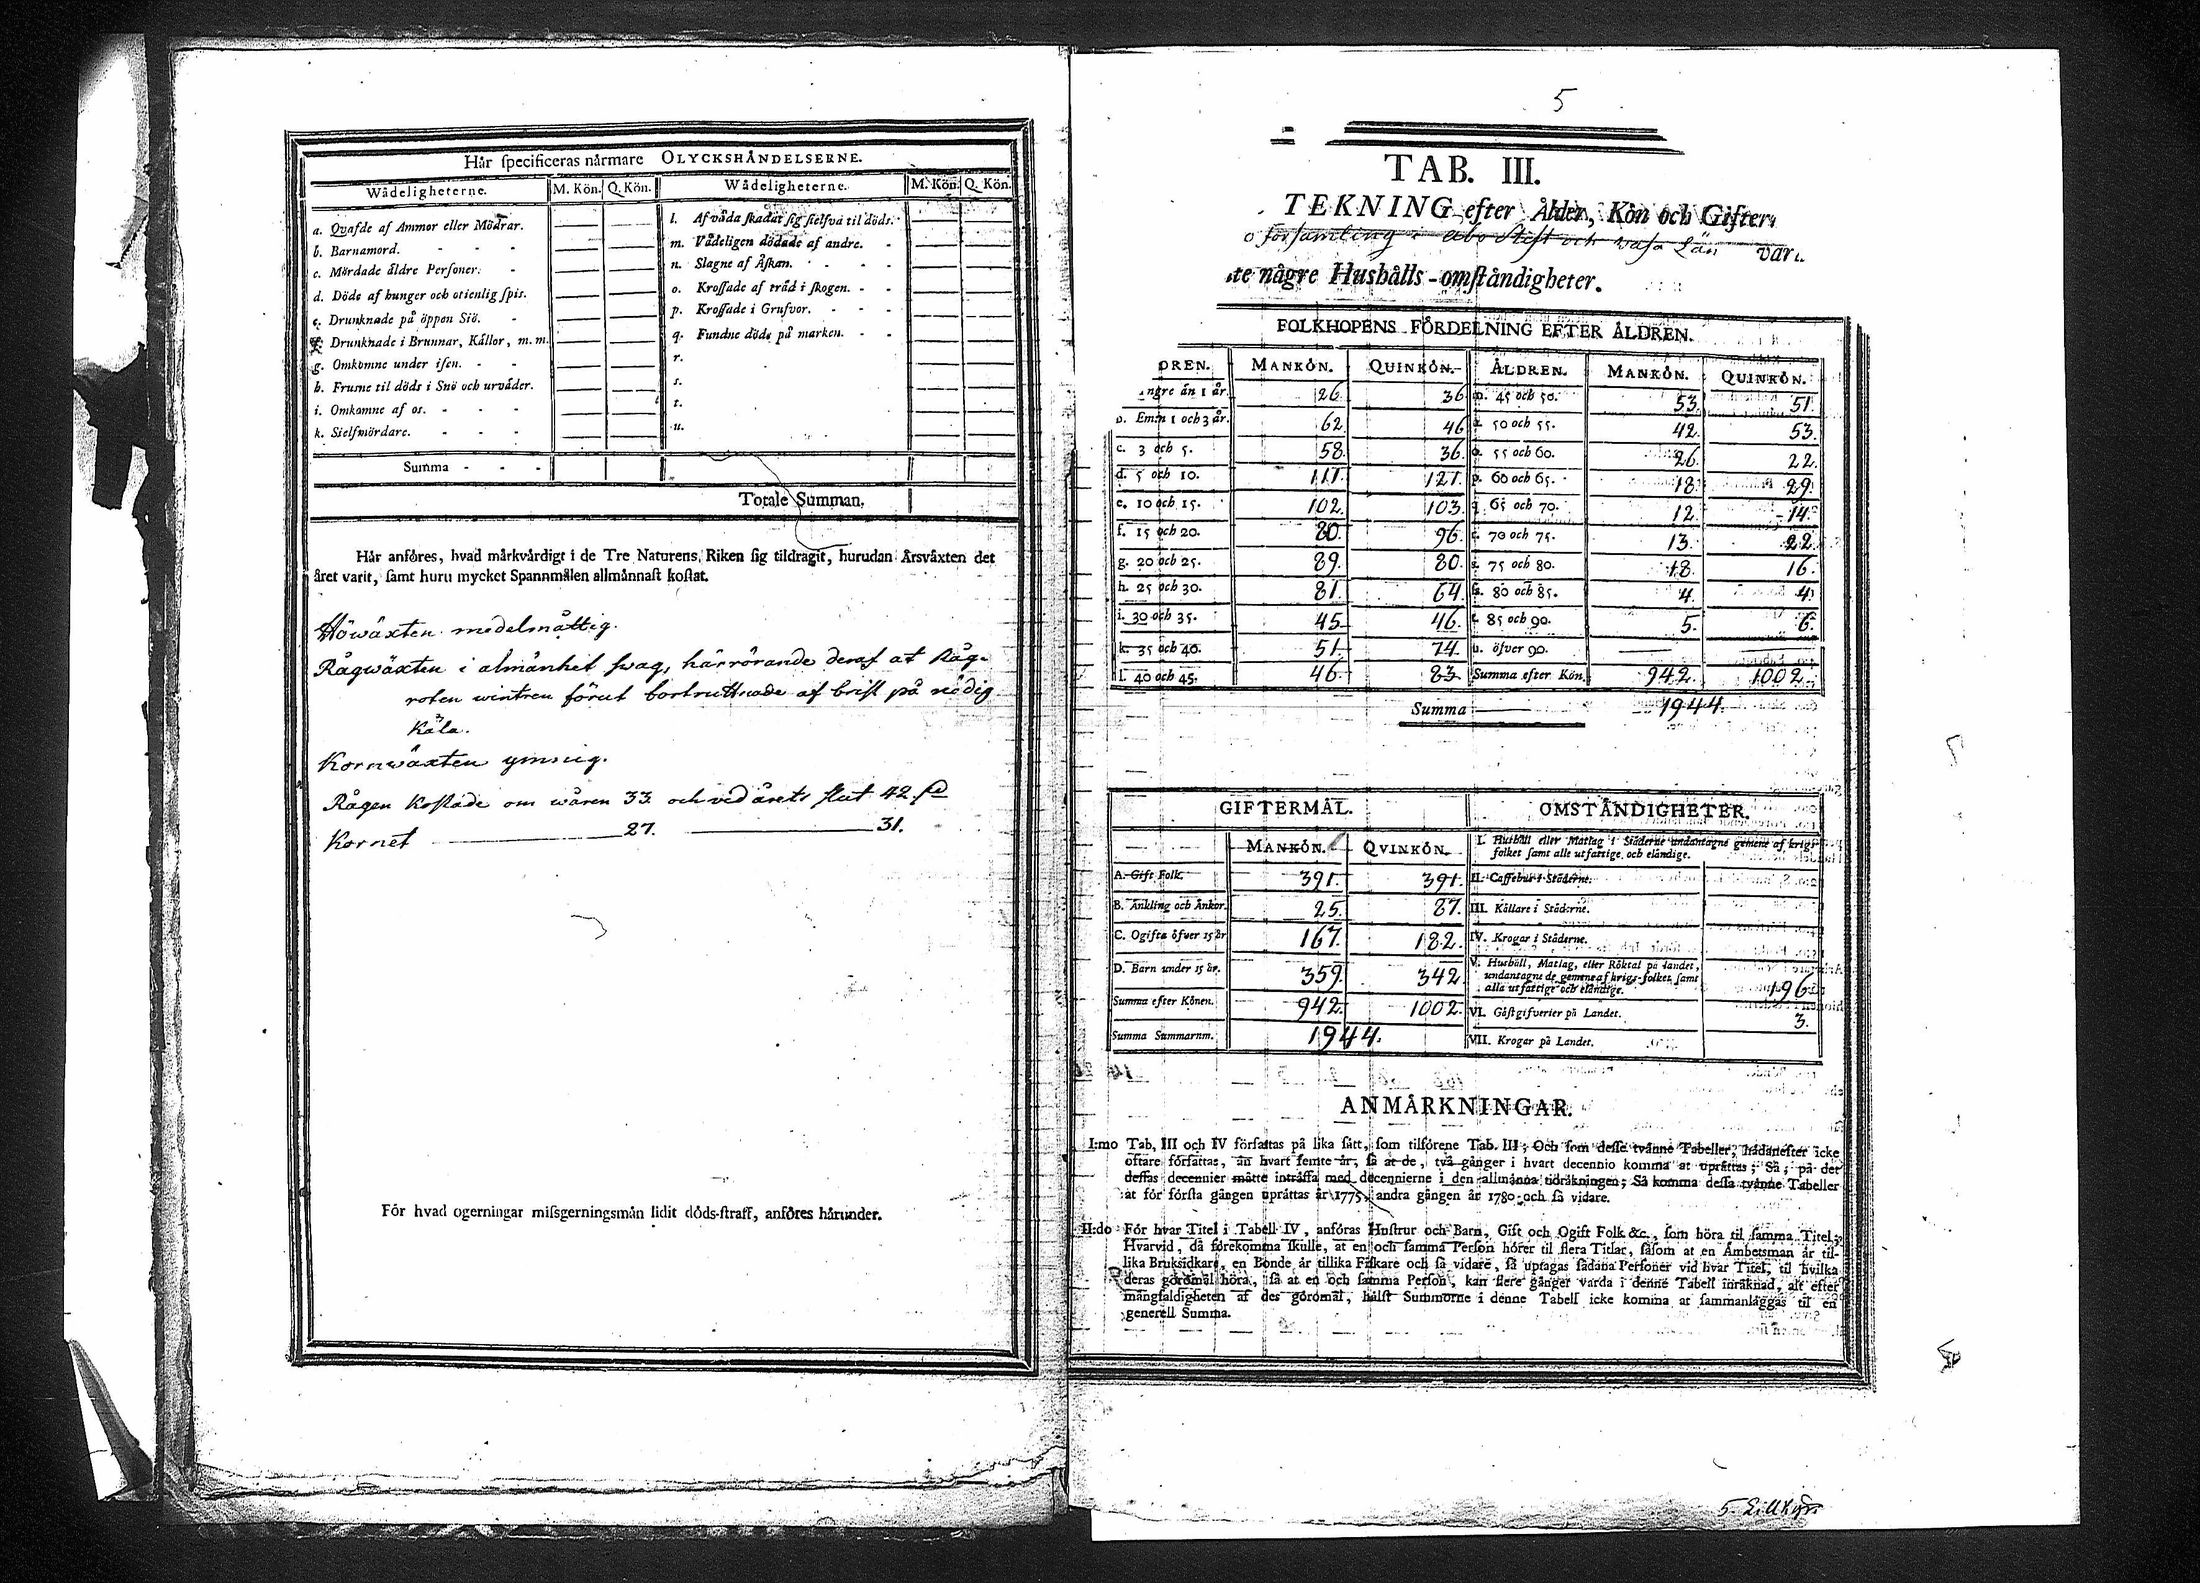 Hår specificeras nårmare OLYCKSHÅNDELSERNE.
Wådeligheterne. M. Kön. Q. Kön. Wådeligheterne. M. Kön. Q. Kön.
a. Qvafde af Ammor eller Mödrar.
b. Barnamord.
c. Mördade åldre Personer.
d. Döde af hunger och otienlig spis.
e. Drunknade på öppen Siö.
f. Drunknade i Brunnar, Kållor, m. m.
g. Omkomne under isen.
h. Frusne til döds i Snö och urvåder.
i. Omkomne af os.
k. Sielfmördare.
Summa
l. Af våda skadat sig sielfva til döds.
m. Vådeligen dödade af andre.
n. Slagne af Åskan.
o. Krossade af tråd i skogen.
p. Krossade i Grufvor.
q. Fundne döde på marken.
r.
s.
t.
u.
Totale Summan.
Hår anföres, hvad mårkvårdigt i de Tre Naturens Riken sig tildragit, hurudan Årsvåxten det
året varit, samt huru mycket Spannmålen allmånnast kostat.
Höwäxten medelmåttig.
Rågwäxten i almänhet swag, härrörande deraf at Råg-
roten wintren förut bortruttnade af brist på nödig
Kåla.
Kornwäxten ymnig.
Rågen Kostade om wåren 33. och vid årets slut 42.
Kornet 27. 31.
För hvad ogerningar missgerningsmån lidit döds-straff, anföres hårunder.
5
TAB. III.
TEKNING efter Ålder, Kön och Gifter
församling i Åbo Stift och Wasa Län var
te någre Hushålls-omståndigheter.
FOLKHOPENS FÖRDELNING EFTER ÅLDREN.
DREN. MANKÖN. QUINKÖN. ÅLDREN. MANKÖN. QUINKÖN.
ngre än 1 år. 26. 36 m. 45 och 50. 53. 51.
b. Emln 1 och 3 år. 62. 46 n. 50 och 55. 42. 53.
c. 3 och 5. 58. 36. o. 55 och 60. 26. 22.
d. 5 och 10. 111. 121. p. 60 och 65. 18. 29.
e. 10 och 15. 102. 103. q. 65 och 70. 12. 14.
f. 15 och 20. 80. 96. r. 70 och 75. 13. 22.
g. 20 och 25. 89. 80. s. 75 och 80. 18. 16.
h. 25 och 30. 81. 64. 80 och 85. 4. 4.
i. 30 och 35. 45. 46. t. 85 och 90. 5. 6.
k. 35 och 40. 51. 74. u. öfver 90.
l. 40 och 45. 46. 83. Summa efter Kön. 942. 1002.
Summa 1944.
GIFTERMÅL. OMSTÅNDIGHETER.
MANKÖN. QVINKÖN.
A. Gift Folk. 391. 391.
B. Ånkling och Ånkor. 25. 87.
C. Ogifta öfver 15 år 167. 182.
D. Barn under 15 år. 359. 342
Summa efter Könen. 942. 1002.
Summa Summarum. 1944.
I. Hushåll eller Matlag i Städerne undantagne gemene af krigs-
folket samt alle utfattige och elåndige.
II. Caffehus i Städerne.
III. Kållare i Städerne.
IV. Krogar i Städerne.
V. Hushåll, Matlag, eller Röktal på landet,
undantagne de gemene af krigs-folket samt
alla utfattige och elåndige. 196
VI. Gåstgifverier på Landet. 3.
VII. Krogar på Landet.
ANMÅRKNINGAR.
I:mo Tab. III och IV författas på lika sått, som tilförene Tab. III; Och som desse tvånne Tabeller, hådanefter icke
oftare författas, ån hvart femte år, så at de, två gånger i hvart decennio komma at upråttas; Så, på det
dessas decennier måtte intråffa med decennierne i den allmånna tidråkningen; Så komma dessa tvånne Tabeller
at för första gången upråttas år 1775, andra gången år 1780 och så vidare.
II:do För hvar Titel i Tabell IV, anföras Hustrur och Barn, Gift och Ogift Folk &c., som höra til samma Titel;
Hvarvid, då förekomma skulle, at en och samma Person hörer til flera Titlar, såsom at en Ämbetsman år til-
lika Bruksidkare, en Bonde år tillika Fiskare och så vidare, så uptagas sådana Personer vid hvar Titel, til hvilka
deras göromål höra, så at en och samma Person, kan flere gånger varda i denne Tabell inråknad, alt efter
mångfaldigheten af des göromål, hålst Summorne i denne Tabell icke komma at sammanlåggas til en
generell Summa.
5. Lillkyro